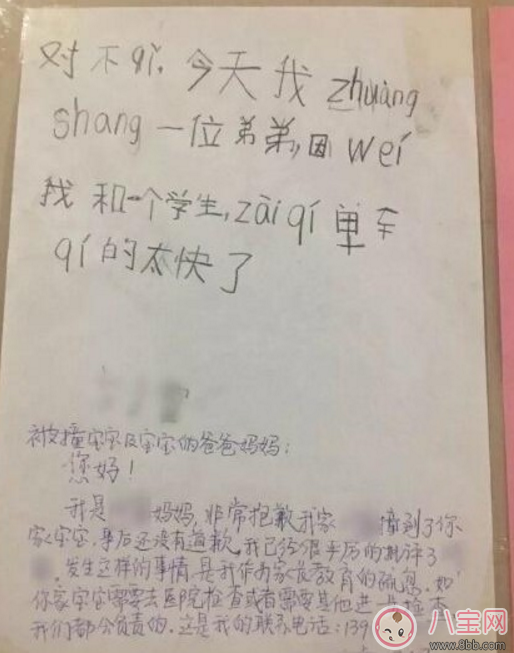 对不qǐ,今天我zhuàng
shang一位弟弟,,因wéi
我和一个学生,zài qí单车
qí的太快了
被撞宝宝及宝宝的爸爸妈妈:
您好!
我是 妈妈,非常抱歉我家 撞到了你
家宝宝,事后还没有道歉,我已经很严厉的批评了
,发生这样的事情,是我作为家长教育的疏忽,如
你家宝宝需要去医院检查或者需要其他进一步检查
我们都会负责的,这是我的联系电话:139
八宝网
www.8bb.com